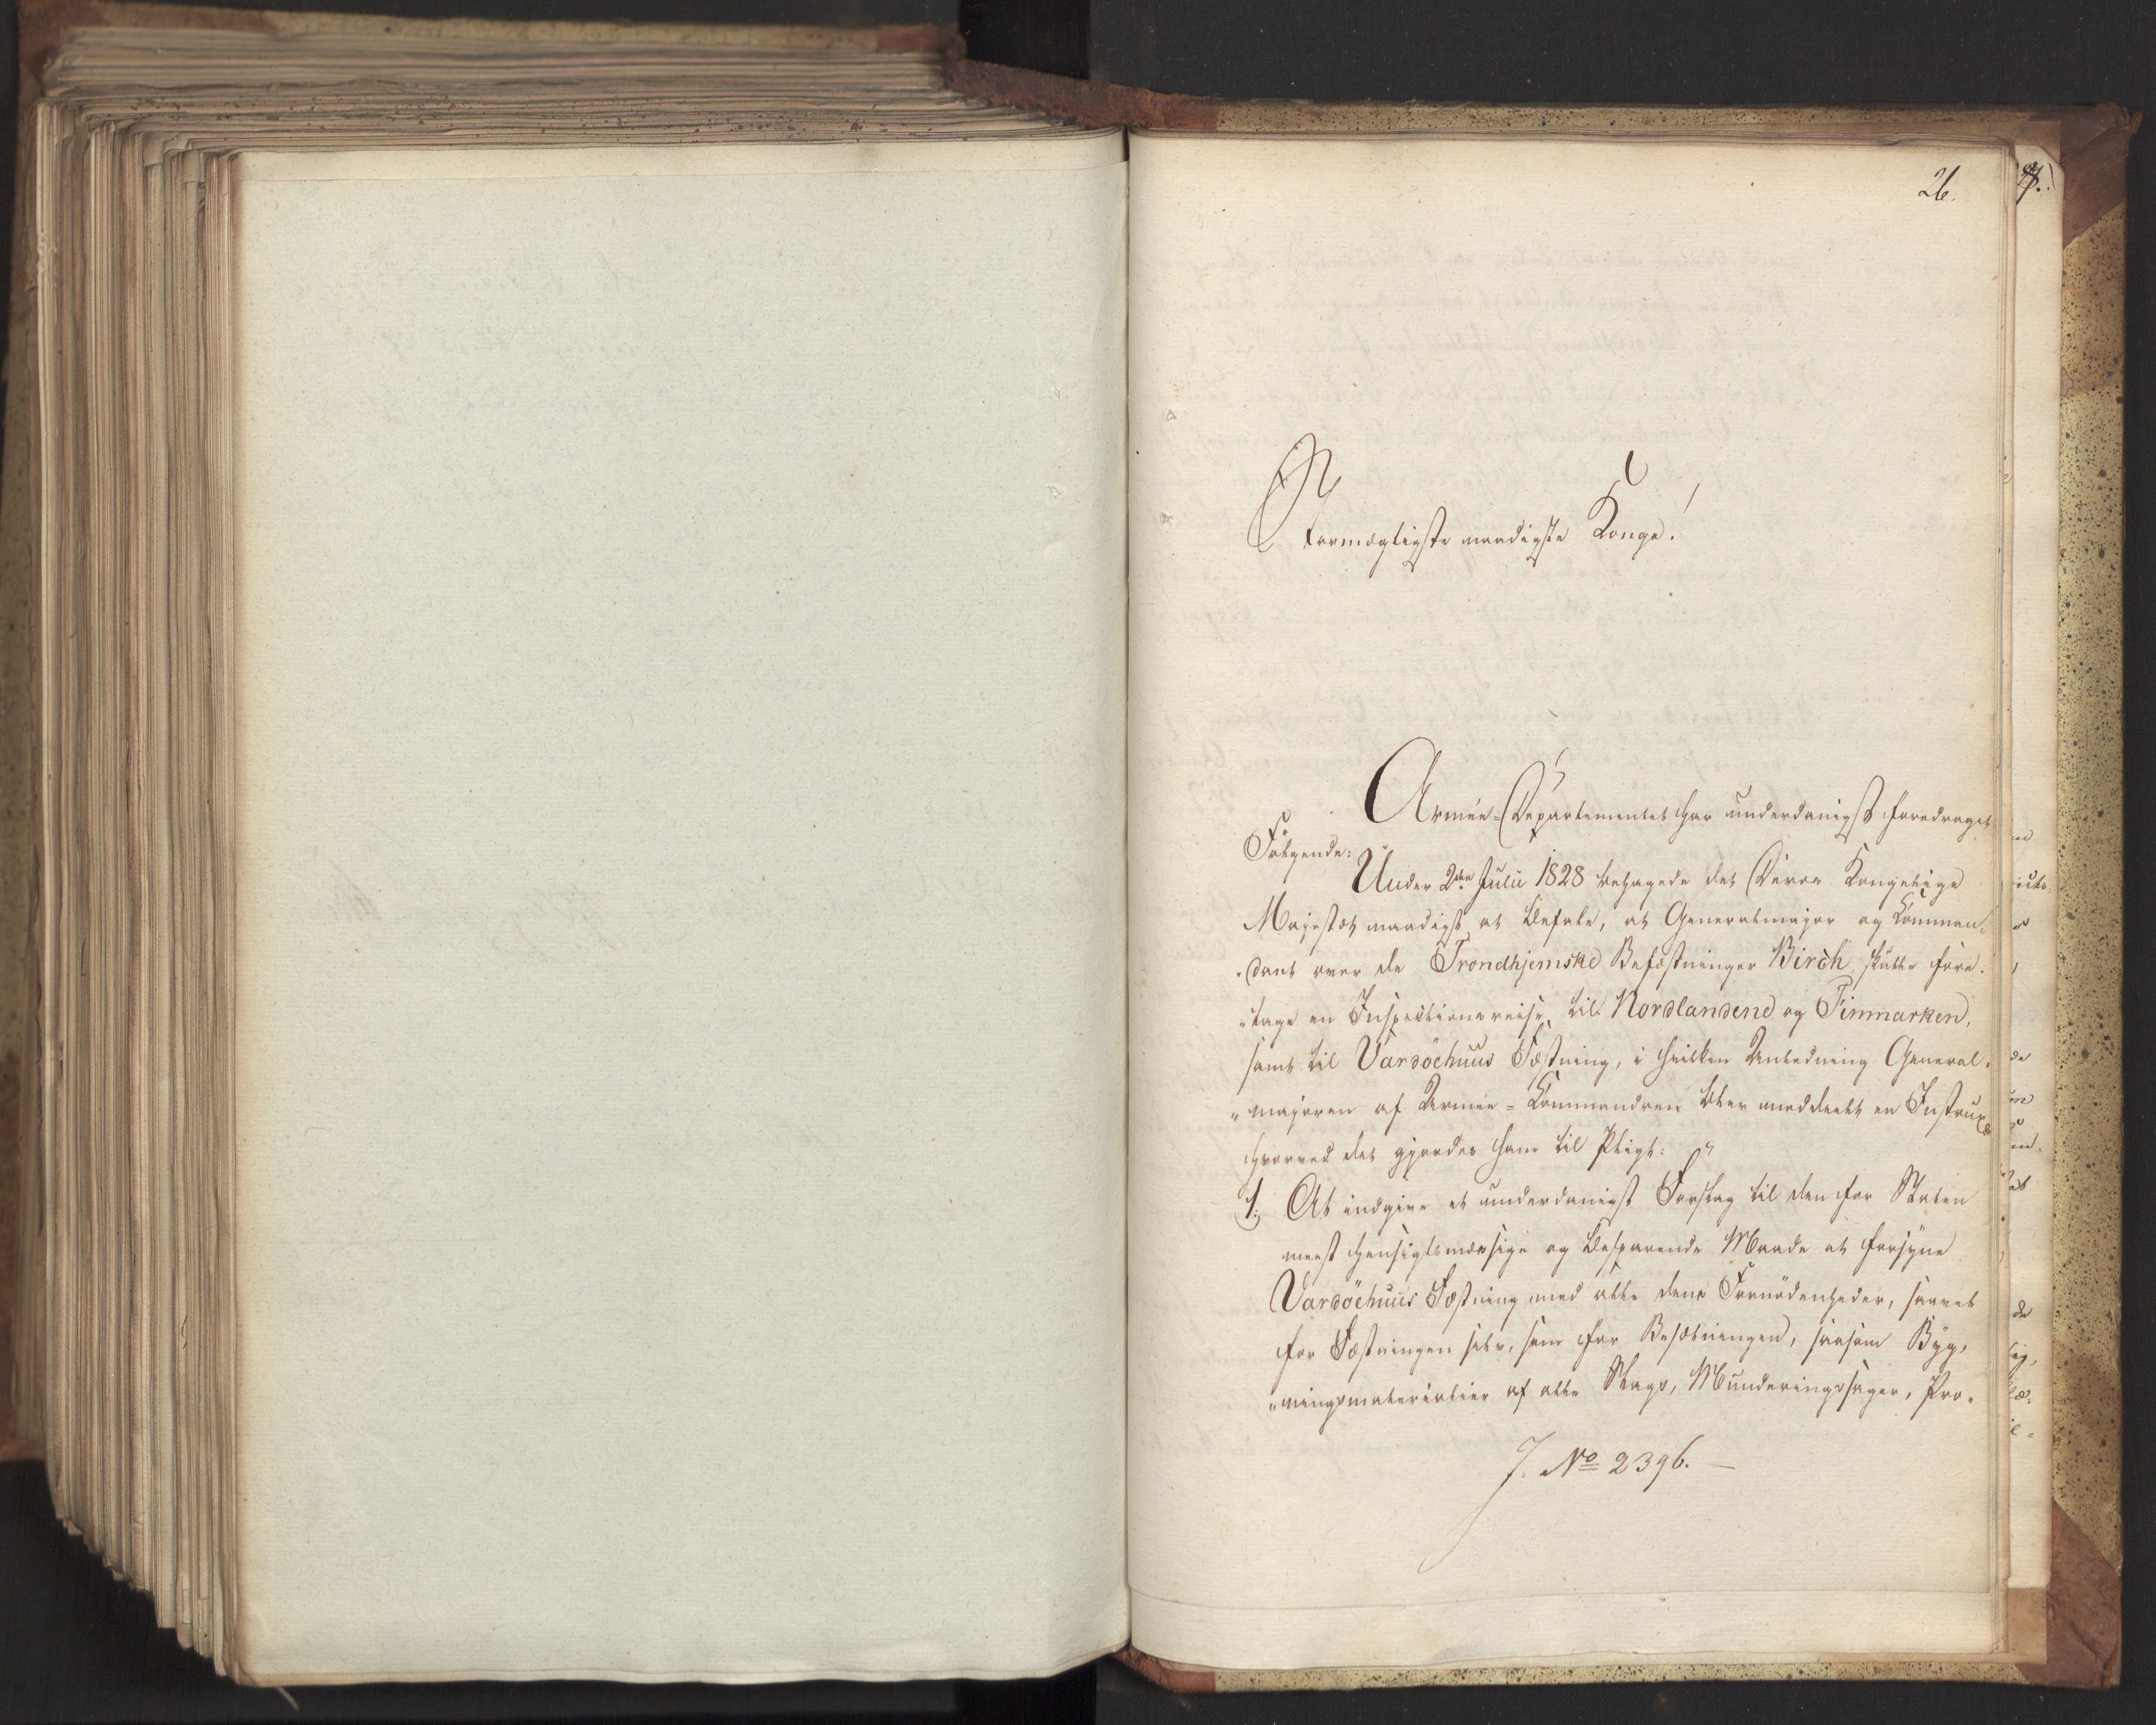 26.
Stormægtigste naadigste Konge!
Armée-Departementet har underdanigst foredraget
Følgende:
Under 2den Julii 1828 behagede det Deres Kongelige
Majestæt naadigst at befale, at Generalmajor og Comman-
"dant over de Trondhjemske Befæstninger Birch skulle fore-
"tage en Inspectionsreise til Nordlandene og Finmarken,
samt til Vardöehuus Fæstning, i hvilken Anledning General-
"majoren af Armee-Commandoen blev meddeelt en Instrux
hvorved det gjordes ham til Pligt:
1. At indgive et underdanigst Forslag til den for Staten
meest hensigtsmæssige og besparende Maade at forsyne
Vardöehuus Fæstning med alle dens Fornödenheder, saavel
for Fæstningen selv, som for Besætningen, saasom Byg-
"ningsmaterialier af alle Slags, Munderingssager, Pro-
J. No 2396. —